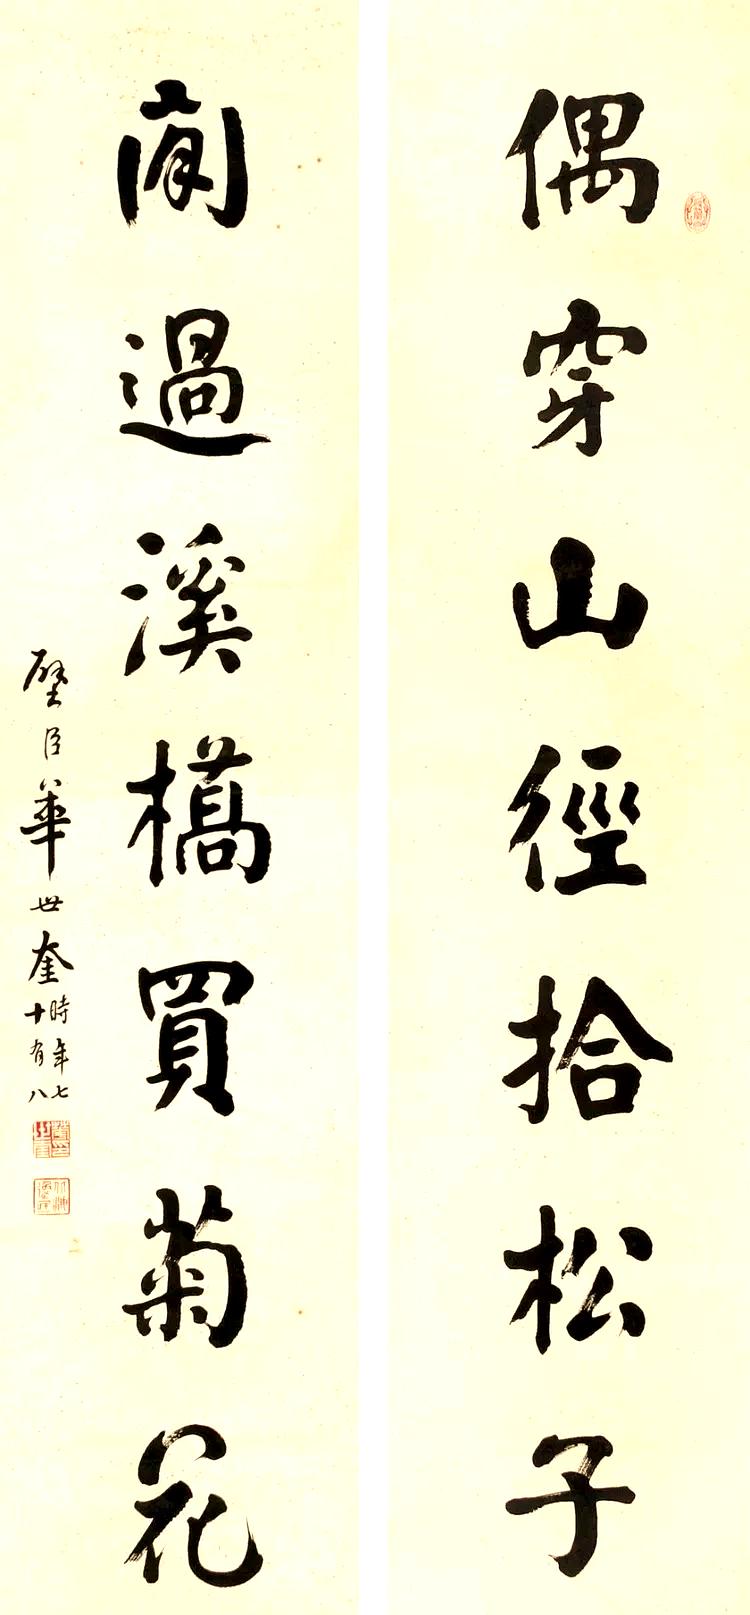 偶穿山徑拾松子
閒過溪橋買菊花
璧臣華世奎
時年七
十有八